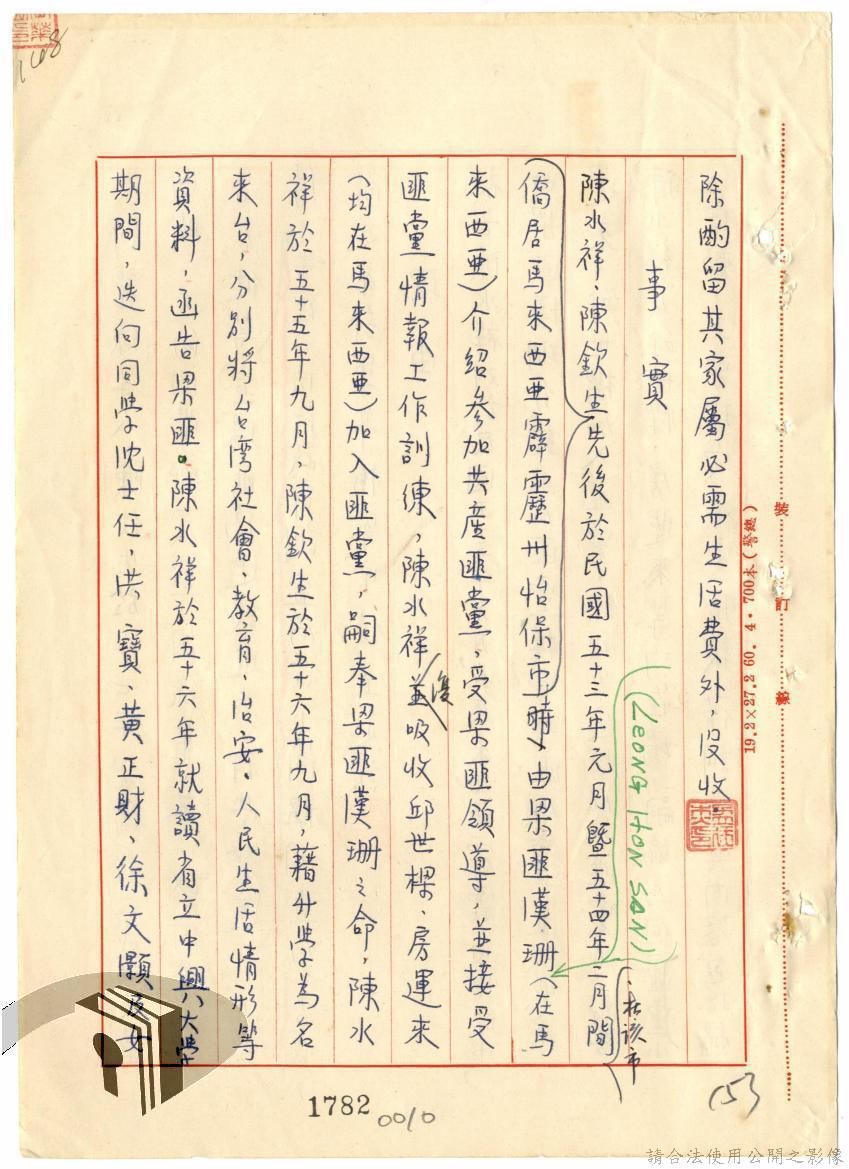 168
除酌留其家屬必需生活費外,沒收。
事實
陳水祥、陳欽生先後於民國五十三年元月暨五十四年二月間
、在該市
(LEONG HON SAN)
(僑居馬來西亞霹靂州怡保市時)由梁匪漢珊(在馬
來西亞)介紹參加共產匪黨,受梁匪領導,並接受
匪黨情報工作訓練,陳水祥並吸收邱世樑、房運來
復
(均在馬來西亞)加入匪黨,嗣奉梁匪漢珊之命,陳水
祥於五十五年九月,陳欽生於五十六年九月,藉升學為名
來台,分別將台湾社會、教育、治安、人民生活情形等
資料,函告梁匪。陳水祥於五十六年就讀省立中興大學
期間,迭向同學沈士任、洪寶、黃正財、徐文灝及女
裝訂線
19.2×27.2 60.4.700本(警總)
(5)
1782
0010
請合法使用公開之影像